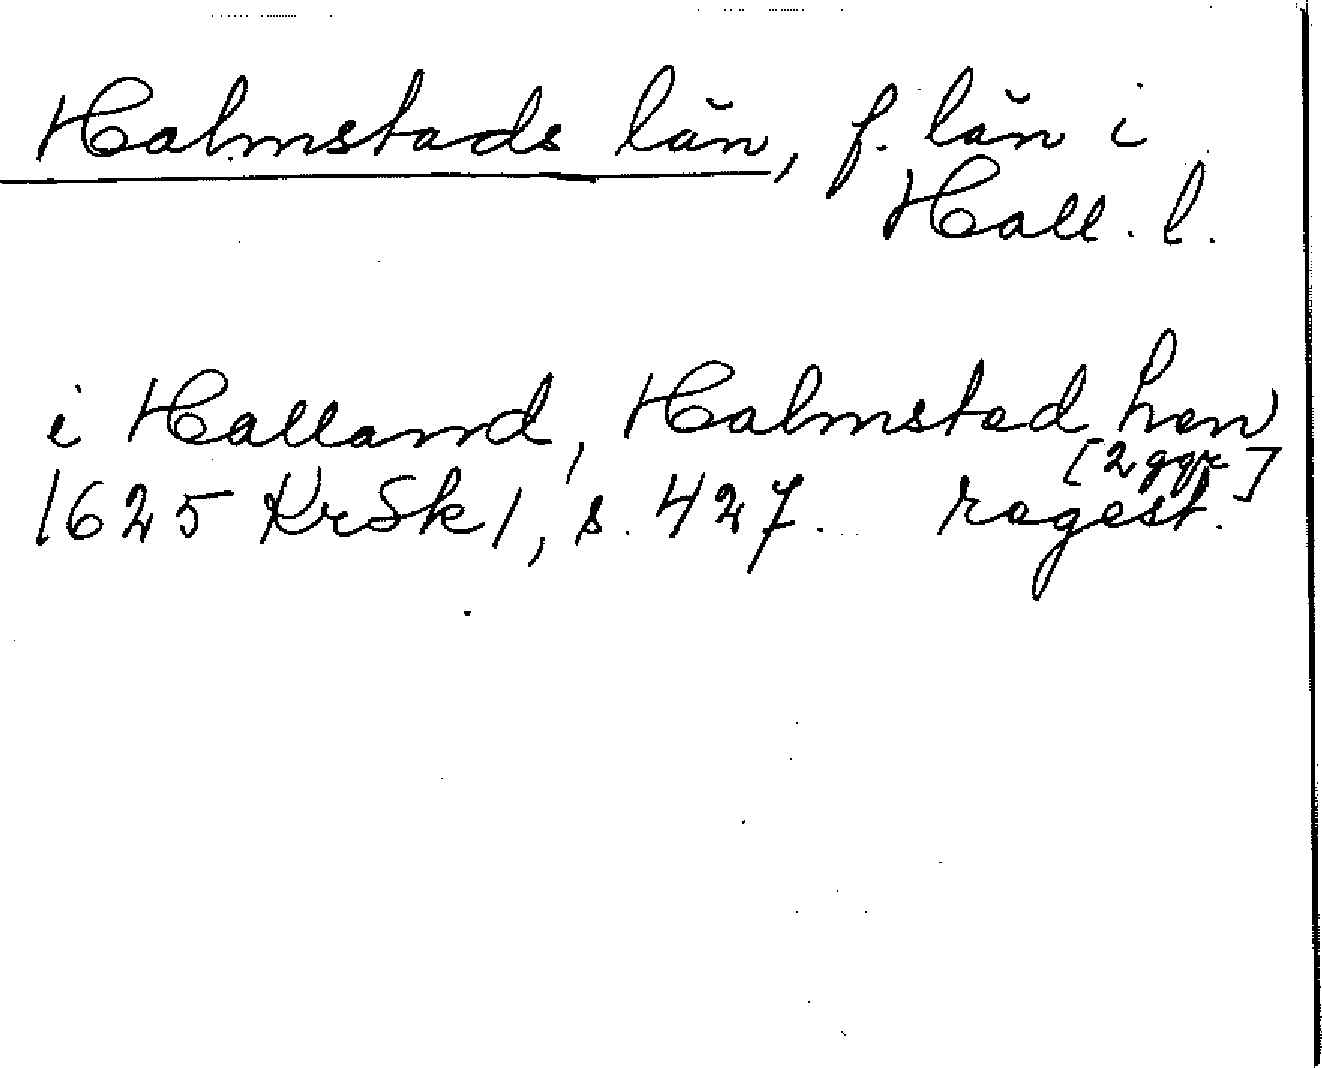 Halmstads län, f. län i
Hall. l.
i Halland, Halmstad len
[2 ggr]
1625 KrSk 1, s. 427. ragest.